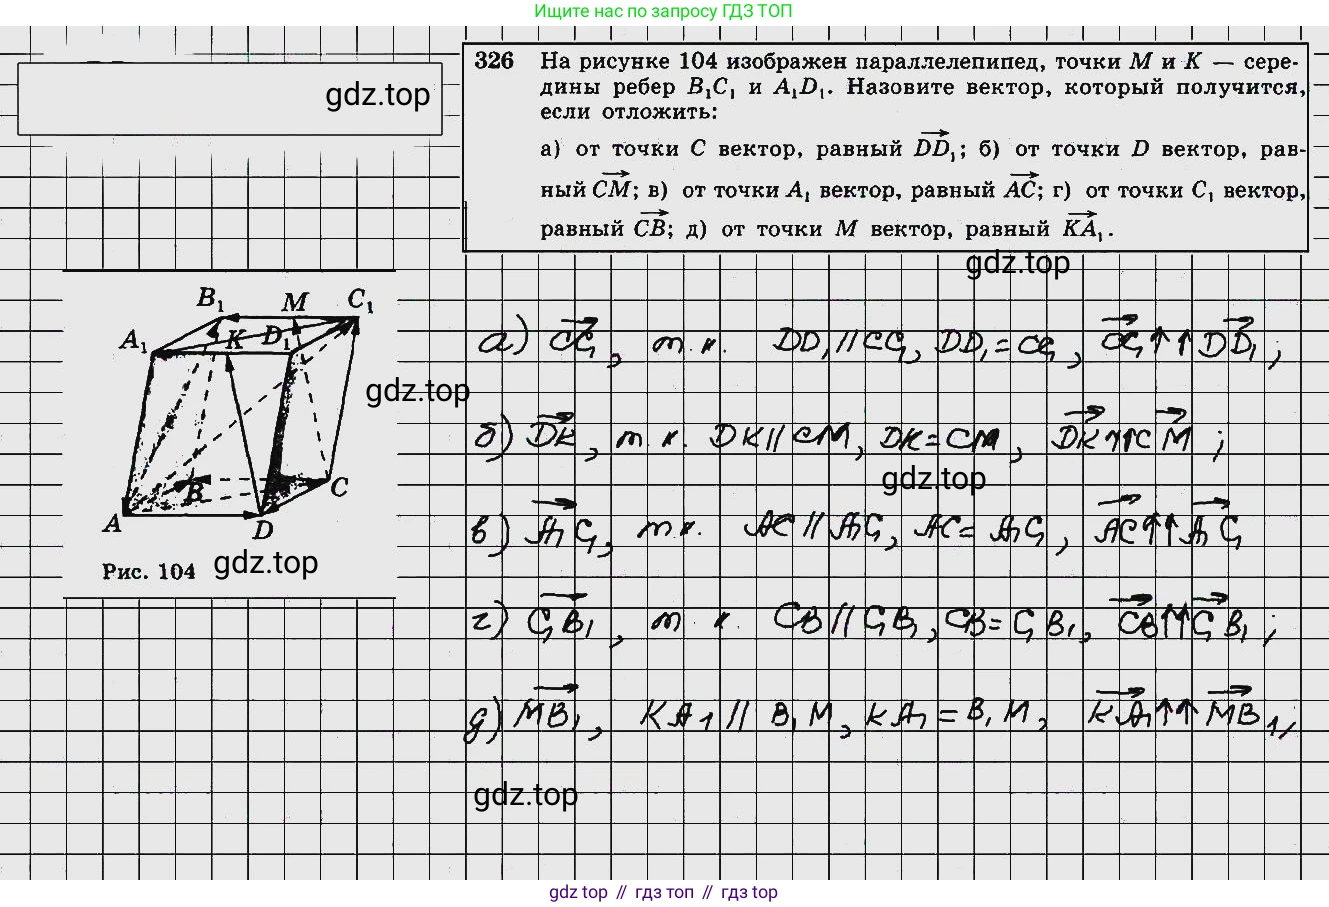 Ищите нас по запросу ГДЗ ТОП
gdz.top
326 На рисунке 104 изображен параллелепипед, точки M и K — сере-
дины ребер B₁C₁ и A₁D₁. Назовите вектор, который получится,
если отложить:
а) от точки C вектор, равный DD₁; б) от точки D вектор, рав-
ный CM; в) от точки A₁ вектор, равный AC; г) от точки C₁ вектор,
равный CB; д) от точки M вектор, равный KA₁.
gdz.top
B₁ M C₁
A₁ K D₁
B C
A D
Рис. 104
gdz.top
gdz.top
а) CC₁, т.к. DD₁ // CC₁, DD₁ = CC₁, CC₁ ↑↑ DD₁;
б) DK, т.к. DK // CM, DK = CM, DK ↑↑ CM;
gdz.top
в) A₁C₁, т.к. AC // A₁C₁, AC = A₁C₁, AC ↑↑ A₁C₁
г) C₁B₁, т.к. CB // C₁B₁, CB = C₁B₁, CB ↑↑ C₁B₁;
д) MB₁, KA₁ // B₁M, KA₁ = B₁M, KA₁ ↑↑ MB₁,
gdz.top
gdz top // гдз топ // gdz top